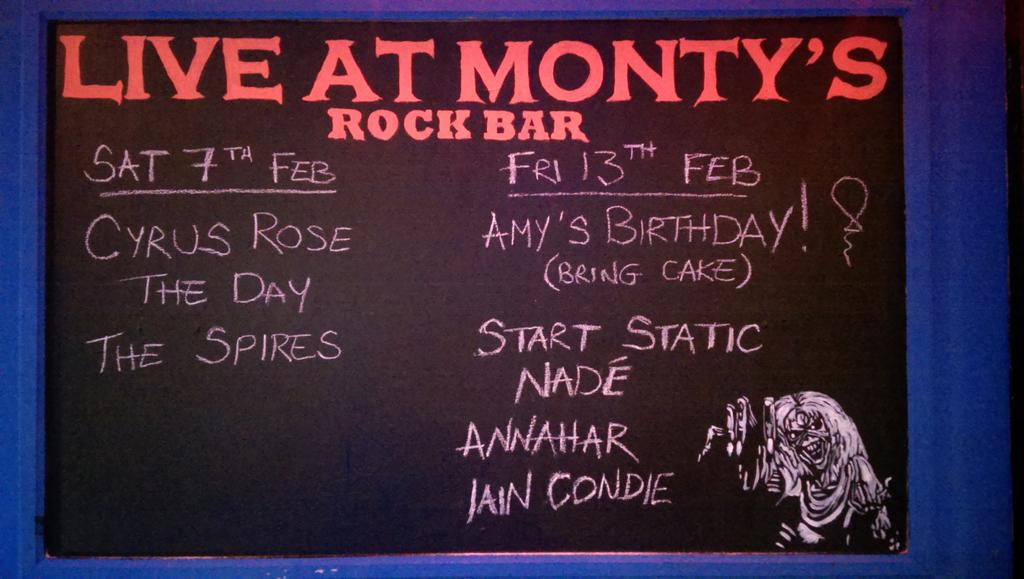 LIVE AT MONTY'S
ROCK BAR
SAT 7TH FEB
CYRUS ROSE
THE DAY
THE SPIRES
FRI 13TH FEB
AMY'S BIRTHDAY!
(BRING CAKE)
START STATIC
NADÉ
ANNAHAR
IAIN CONDIE